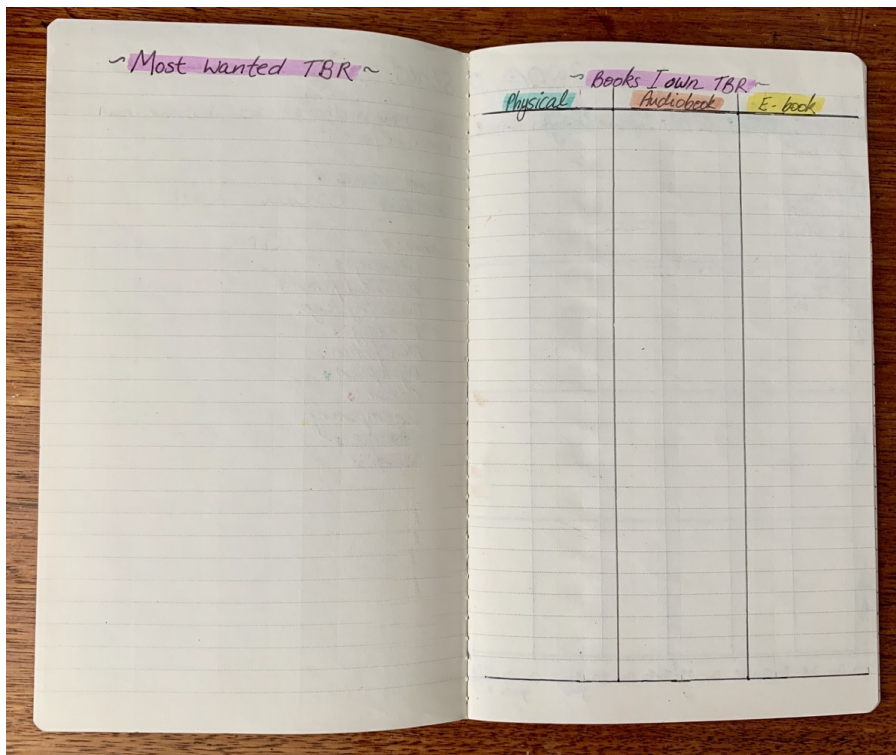 ~Most Wanted TBR~
~Books I own TBR~
Physical Audiobook E-book